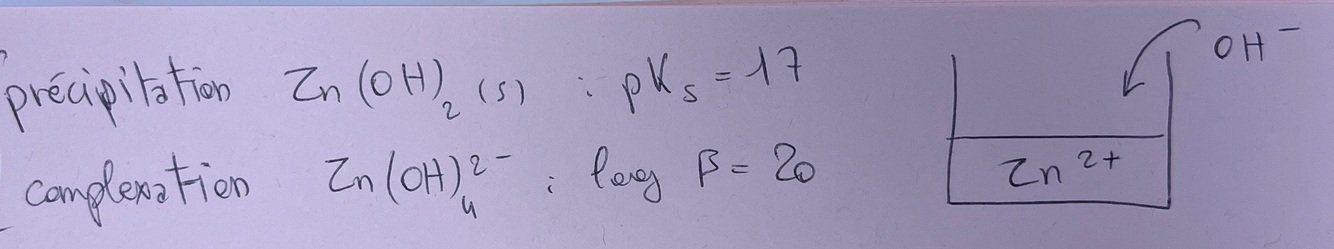 précipitation Zn(OH)₂ (s) : pKₛ = 17
complexation Zn(OH)₄²⁻ : log β = 20
OH⁻
Zn²⁺